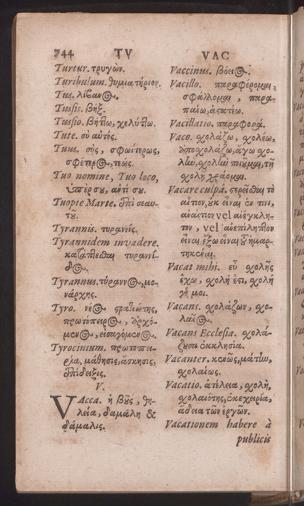 744 TV VAC
Turtur. τρυγών.
Turibulum. θυμιατήριον.
Tus. λίβανος.
Tussis. βήξ.
Tussio. βήττω, χελύττω.
Tute. σὺ αὐτός.
Tuus. σὸς, σφωΐτερος,
σφέτερος, τεός.
Tuo nomine, Tuo loco,
ὑπέρ σου, ἀντί σου.
Tuopte Marte. ἐπὶ σεαυ-
τοῦ.
Tyrannis. τυραννίς.
Tyrannidem invadere.
Tyrannus. τύραννος, μο-
νάρχης.
Tyro. νέος στρατιώτης,
πρωτόπειρος, ἀρχό-
μενος, εἰσαγόμενος.
Tyrocinium. πρωτοπει-
ρία, μάθησις, ἄσκησις,
ἐπίδειξις.
V.
VAcca. ἡ βοῦς,
δαμάλη &
δάμαλις.
Vaccinus. βόειος.
Vacillo. παραφέρομαι,
σφάλλομαι, παρα-
παίω,
Vacillatio. παραφορά.
Vaco. σχολάζω,
ὑποσχολάζω, ἄγω σχο-
λὴν, σχολὴν ποιοῦμαι, τῇ
σχολῇ χρῶμαι.
Vacare culpâ. στερεῖσθαι τὸ
αἴτιον, οὐκ εἶναι
ἀναίτιον vel ἀνέγκλη-
τον, vel ἀνεπίληπτον
εἶναι, ἔξω εἶναι
Vacat mihi. εὖ σχολῆς
ἔχω, σχολή ἐστι, σχολή
γέ μοι.
Vacans. σχολάζων, σχο-
λαῖος.
Vacans Ecclesia. σχολά-
ζουσα ἐκκλησία.
Vacanter. κενῶς, μάτην,
σχολαίως.
Vacatio. ἀτέλεια, σχολὴ,
σχολαιότης, ἐκεχειρία,
ἄδεια τῶν ἔργων.
Vacationem habere à
publicis